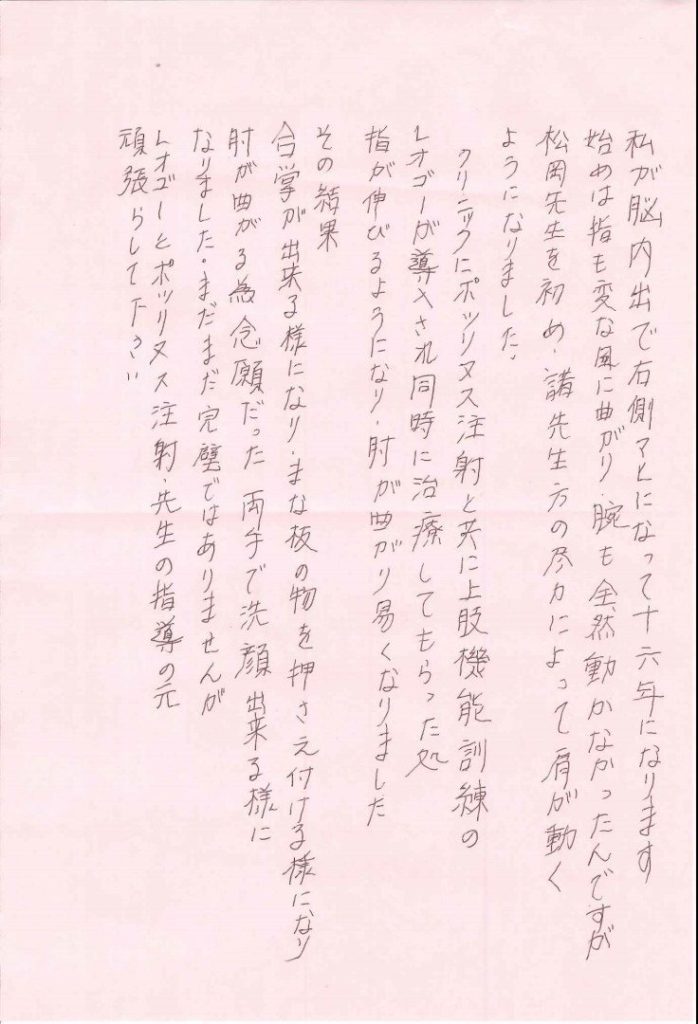 私が脳内出で右側マヒになって十六年になります
始めは指も変な風に曲がり・腕も全然動かなかったんですが
松岡先生を初め・諸先生方の尽力によって肩が動く
ようになりました。
クリニックにボツリヌス注射と共に上肢機能訓練の
レオゴーが導入され同時に治療してもらった処
指が伸びるようになり・肘が曲がり易くなりました
その結果
合掌が出来る様になり・まな板の物を押さえ付ける様になり
肘が曲がる為念願だった両手で洗顔出来る様に
なりました・まだまだ完璧ではありませんが
レオゴーとボツリヌス注射・先生の指導の元
頑張らして下さい